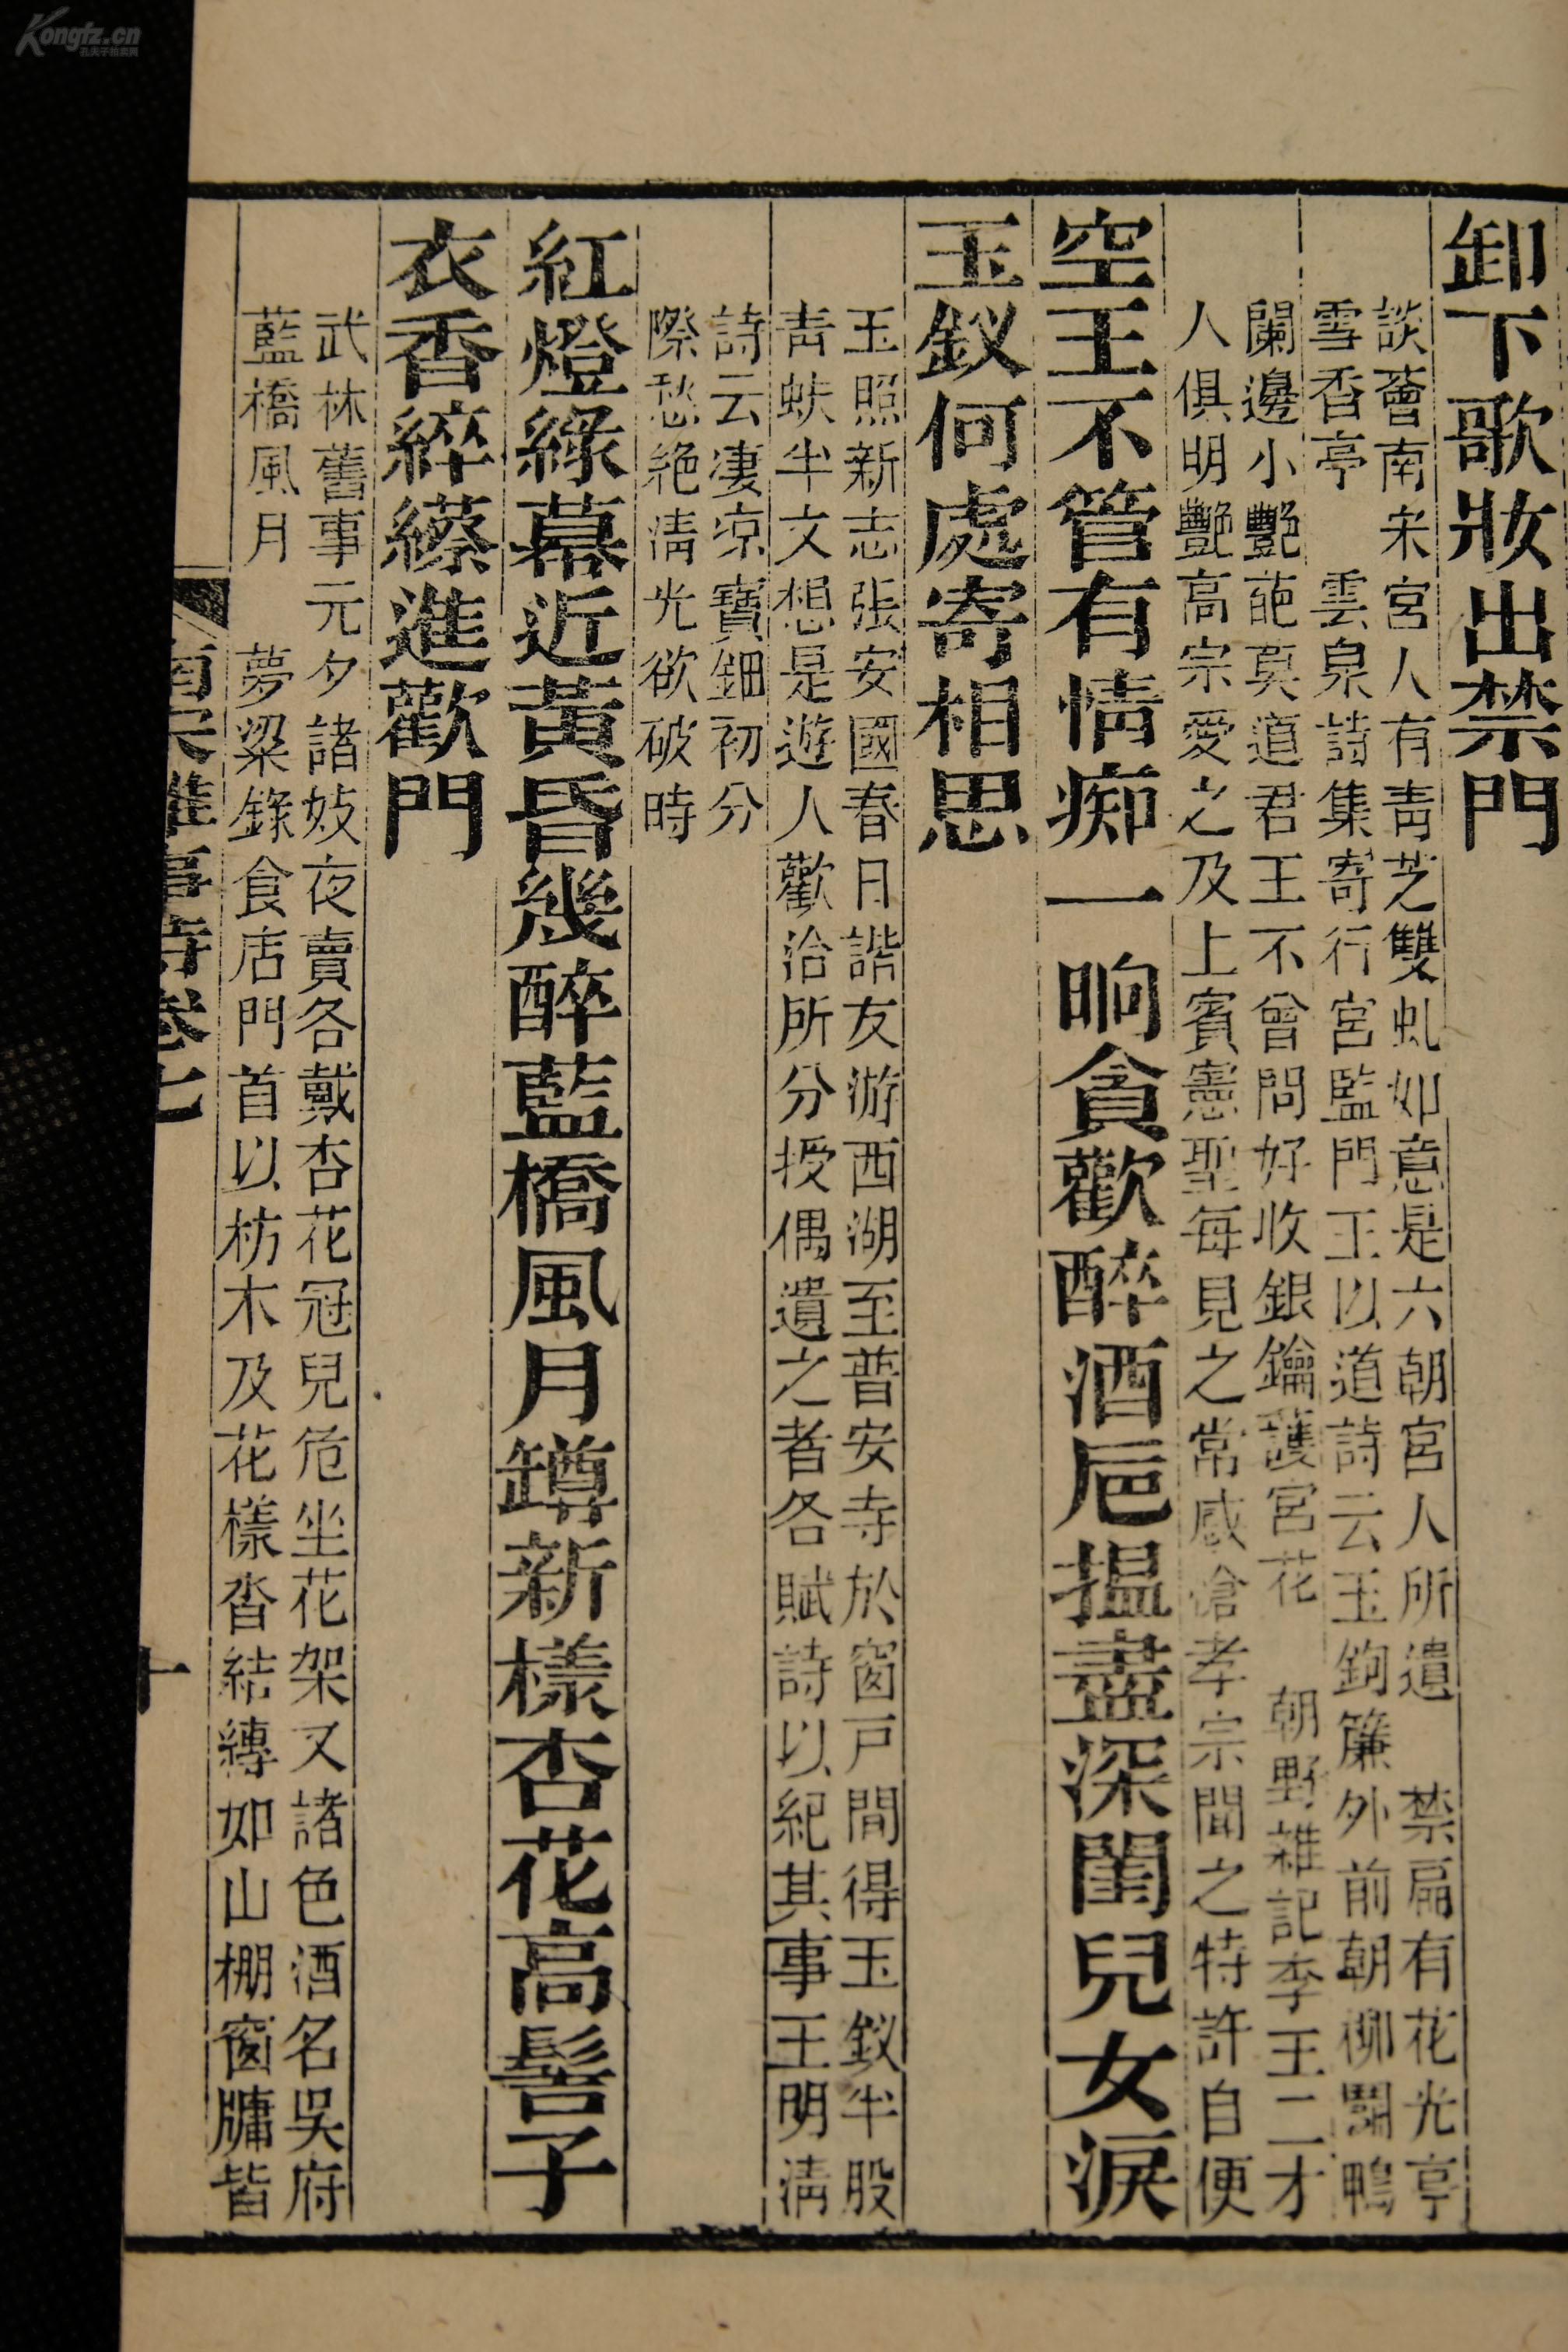 卸下歌妝出禁門
談薈南宋宮人有青芝雙虬如意是六朝宮人所遺 禁扁有花光亭
雪香亭 雲泉詩集寄行宮監門王以道詩云玉鉤簾外前朝柳鬬鴨
闌邊小艷葩莫道君王不曾問好收銀鑰護宮花 朝野雜記李王二才
人俱明艷高宗愛之及上賓憲聖每見之常感愴孝宗聞之特許自便
空王不管有情痴一晌貪歡醉酒巵搵盡深閨兒女淚
玉釵何處寄相思
玉照新志張安國春日諧友游西湖至普安寺於窗戶間得玉釵半股
青蚨半文想是遊人歡洽所分授偶遺之者各賦詩以紀其事王明清
詩云凄凉寶鈿初分
際愁絶清光欲破時
紅燈綠幕近黃昏幾醉藍橋風月罇新樣杏花高髻子
衣香綷縩進歡門
武林舊事元夕諸妓夜賣各戴杏花冠兒危坐花架又諸色酒名吳府
藍橋風月 夢粱錄食店門首以枋木及花樣沓結縳如山棚窗牖皆
南宋雜事詩卷七
十
Kongfz.cn